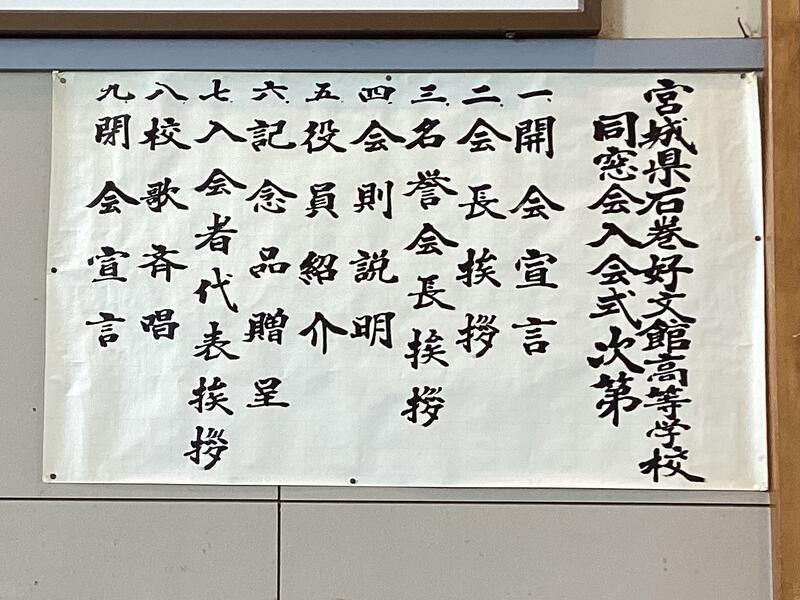 宮城県石巻好文館高等学校
同窓会入会式次第
一、開会宣言
二、会長挨拶
三、名誉会長挨拶
四、会則説明
五、役員紹介
六、記念品贈呈
七、入会者代表挨拶
八、校歌斉唱
九、閉会宣言